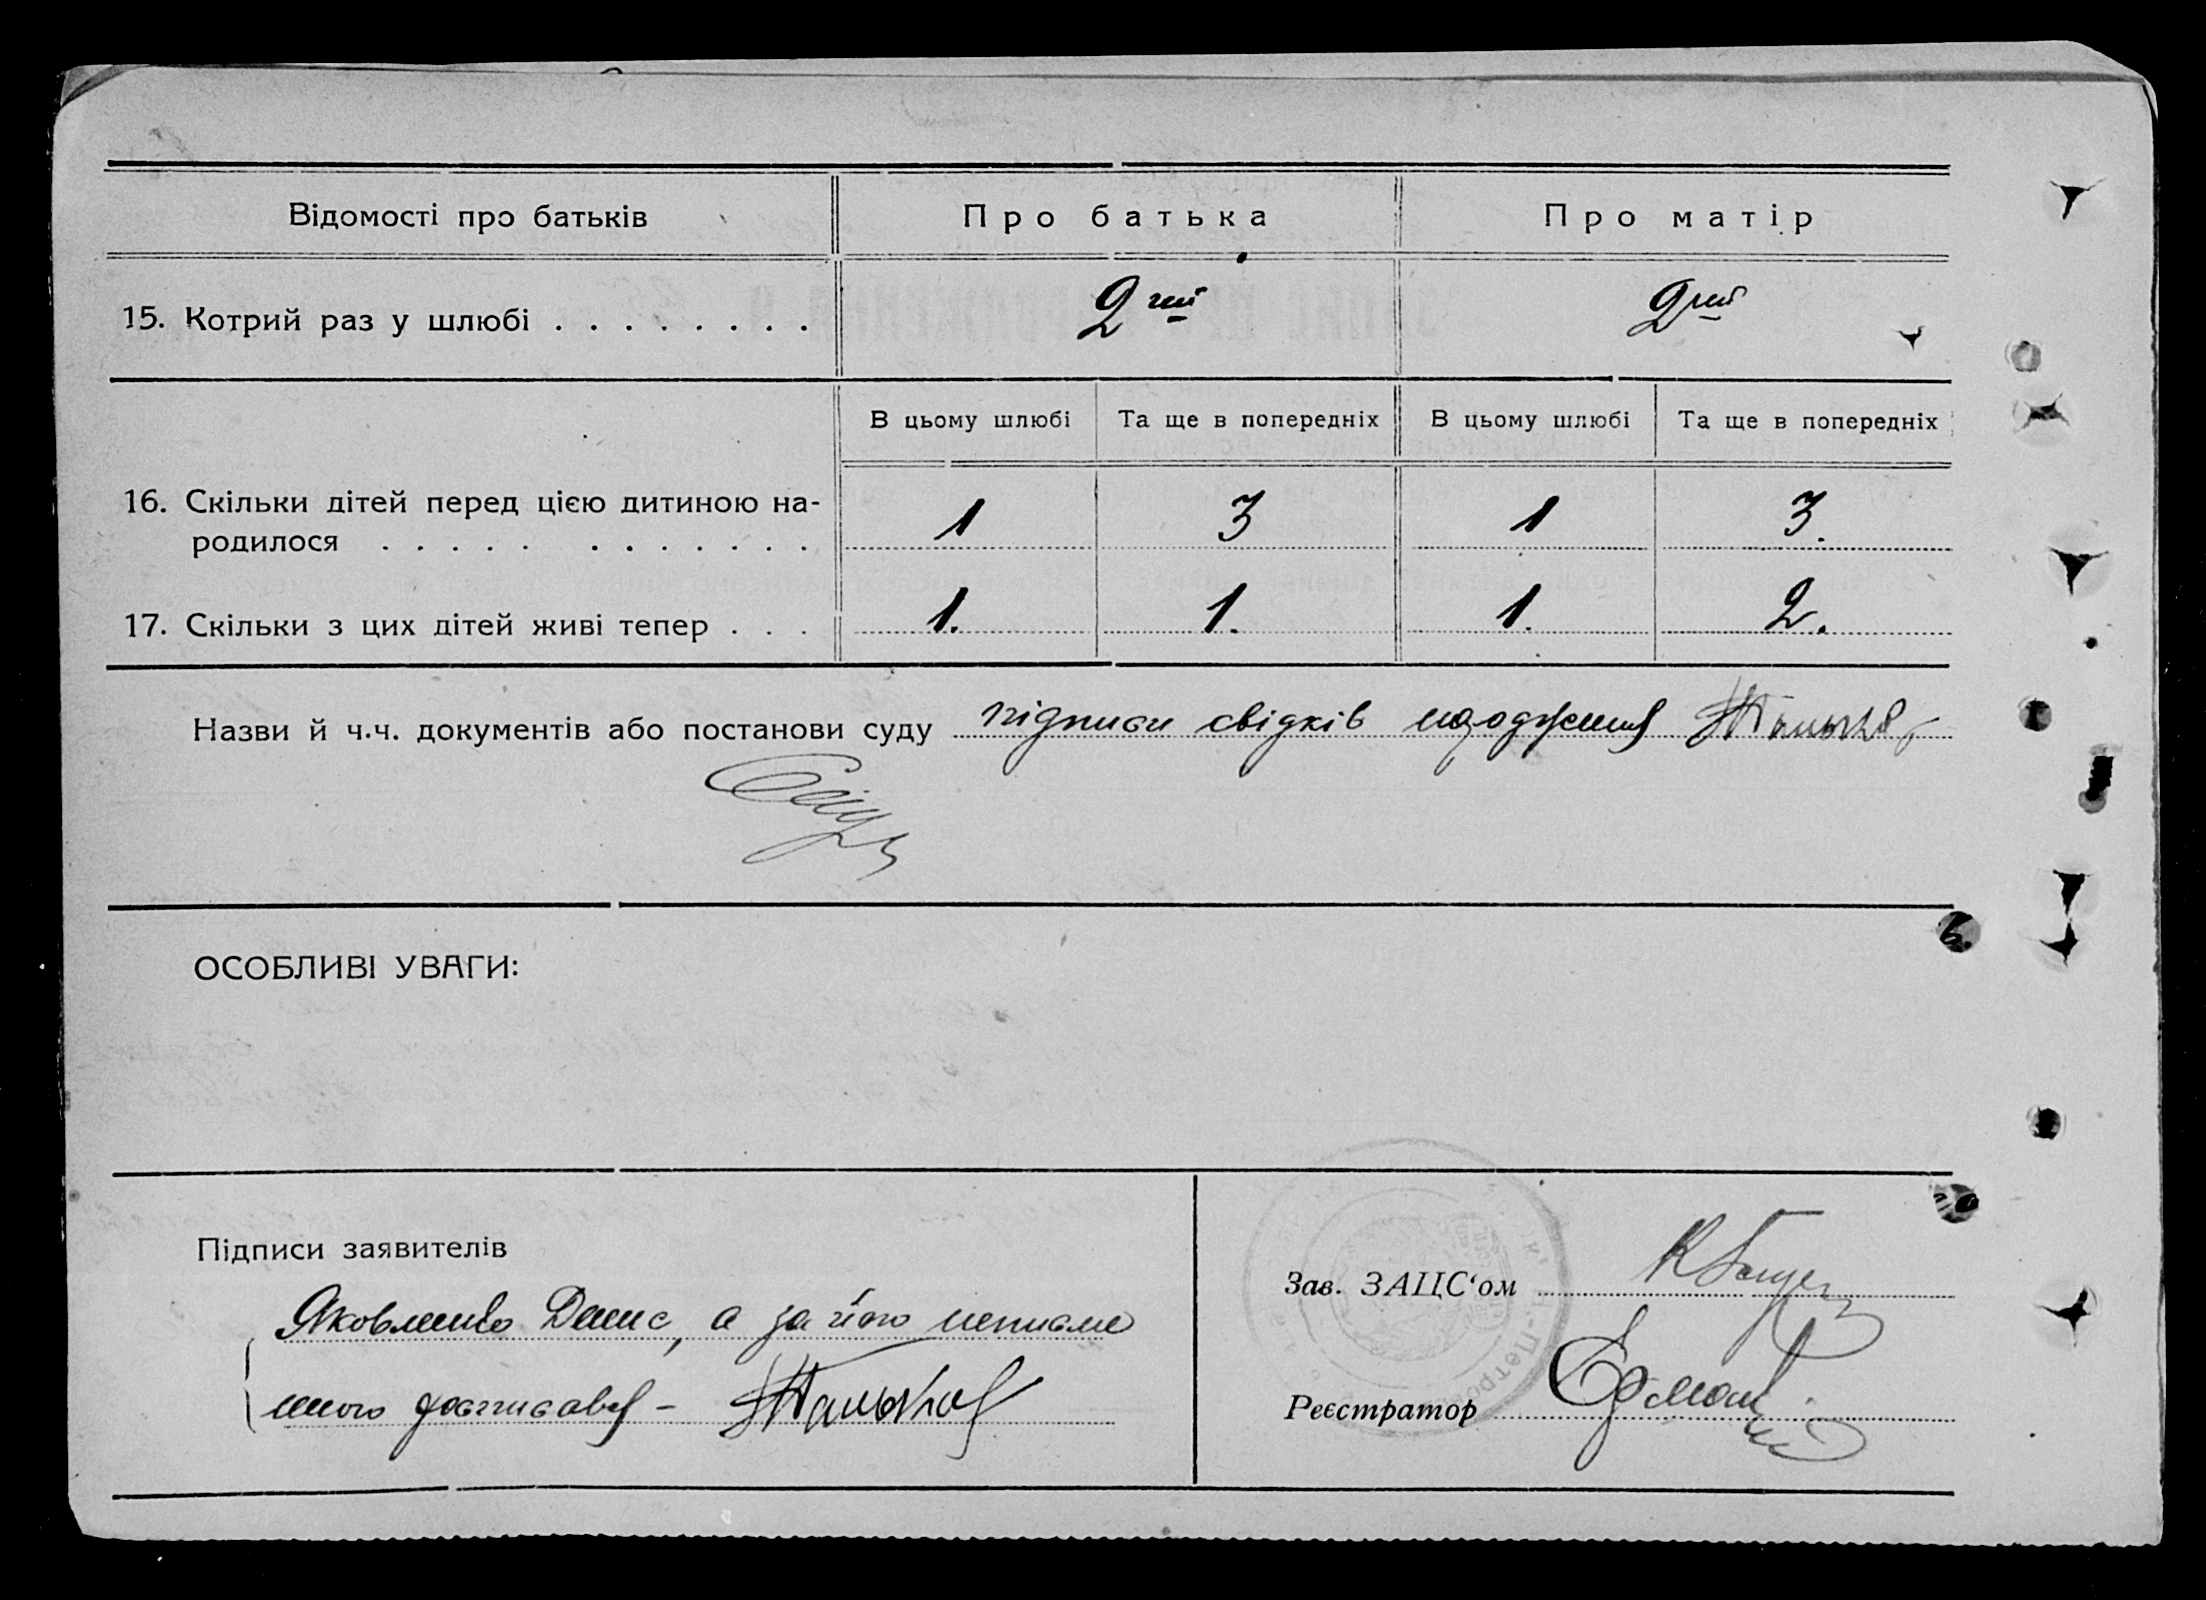 Відомості про батьків Про батька Про матір
15. Котрий раз у шлюбі . . . . . . . . 2гий 2гий
В цьому шлюбі Та ще в попередніх В цьому шлюбі Та ще в попередніх
16. Скільки дітей перед цією дитиною на-
родилося . . . . . . . . . . . . 1 3 1 3.
17. Скільки з цих дітей живі тепер . . . 1. 1. 1. 2.
Назви й ч.ч. документів або постанови суду підписи свідків
ОСОБЛИВІ УВАГИ:
Підписи заявителів
Яковленко Денис, а за його неписьме
нного росписавсь –
Зав. ЗАЦС‘ом
Реєстратор